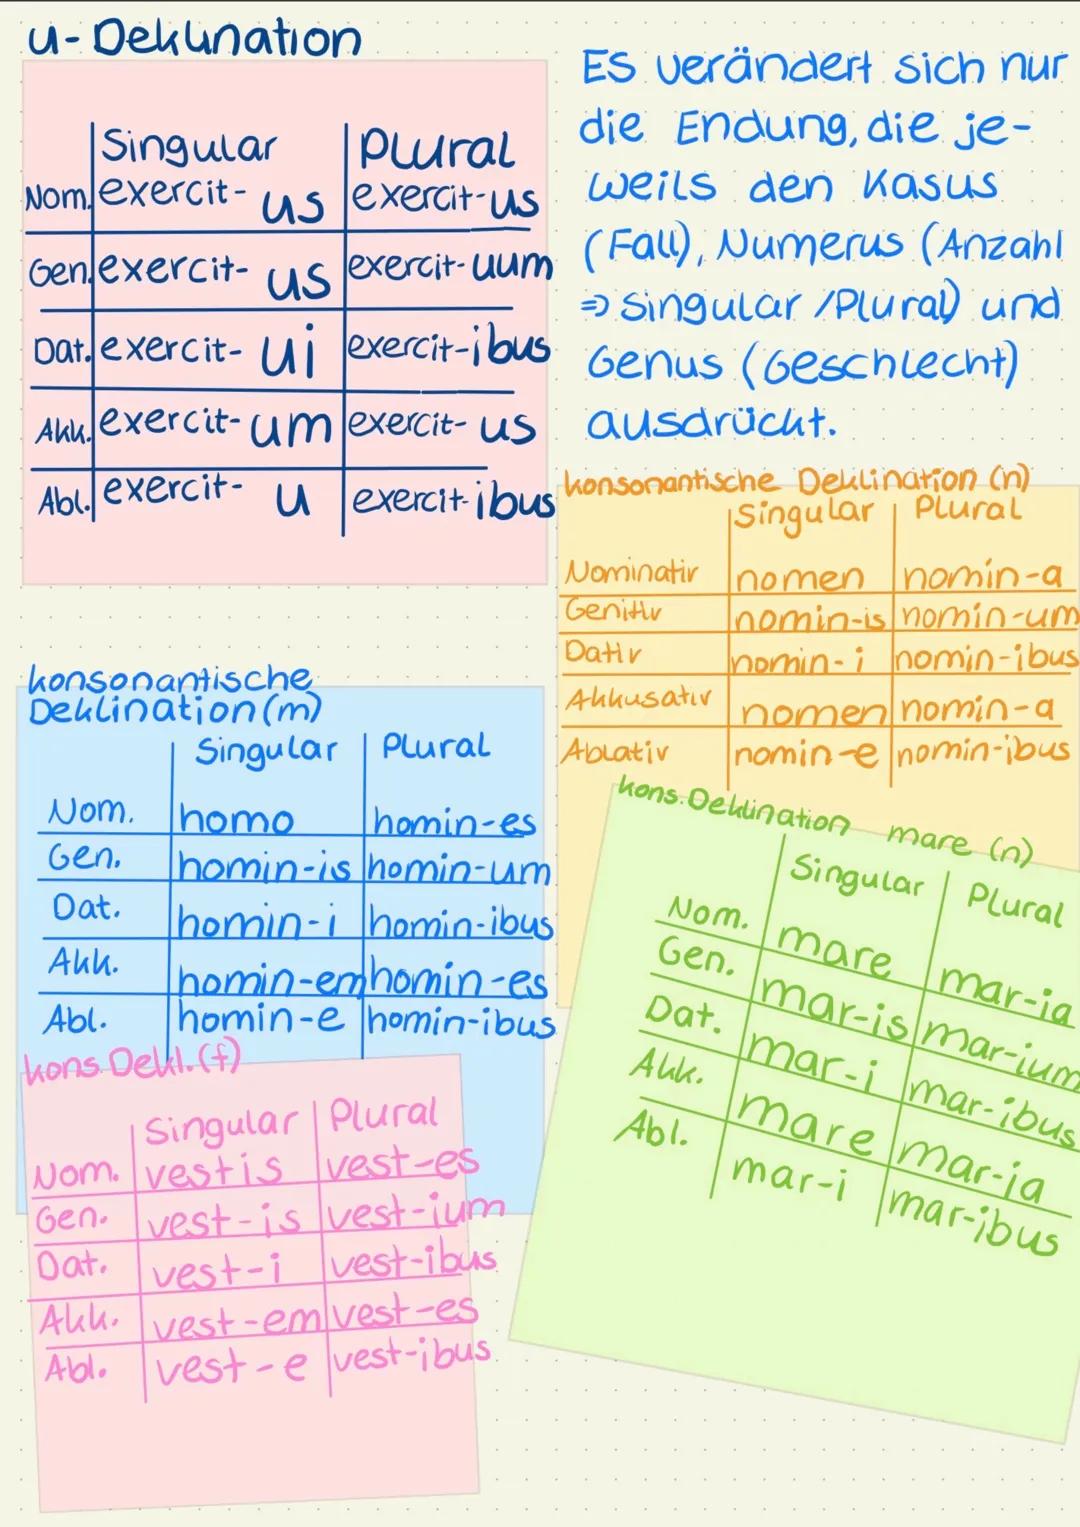 u-Deklination
Singular Plural
Nom. exercit-us exercit-us
Gen. exercit-us exercit-uum
Dat. exercit-ui exercit-ibus
Akk. exercit-um exercit-us
Abl. exercit-u exercit-ibus
Es verändert sich nur
die Endung, die je-
weils den Kasus
(Fall), Numerus (Anzahl
⇒ Singular / Plural) und
Genus (Geschlecht)
ausdrückt.
konsonantische Deklination (n)
Singular Plural
Nominativ nomen nomin-a
Genitiv nomin-is nomin-um
Dativ nomin-i nomin-ibus
Akkusativ nomen nomin-a
Ablativ nomin-e nomin-ibus
konsonantische
Deklination (m)
Singular Plural
Nom. homo homin-es
Gen. homin-is homin-um
Dat. homin-i homin-ibus
Akk. homin-em homin-es
Abl. homin-e homin-ibus
kons. Deklination mare (n)
Singular Plural
Nom. mare mar-ia
Gen. mar-is mar-ium
Dat. mar-i mar-ibus
Akk. mare mar-ia
Abl. mar-i mar-ibus
kons. Dekl. (f)
Singular Plural
Nom. vestis vest-es
Gen. vest-is vest-ium
Dat. vest-i vest-ibus
Akk. vest-em vest-es
Abl. vest-e vest-ibus